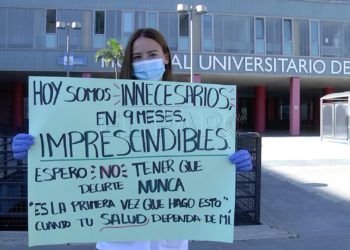 HOSPITAL UNIVERSITARIO DE
HOY SOMOS INNECESARIOS,
EN 9 MESES,
IMPRESCINDIBLES.
ESPERO NO TENER QUE
DECIRTE NUNCA
"ES LA PRIMERA VEZ QUE HAGO ESTO"
CUANTO TU SALUD DEPENDA DE MÍ